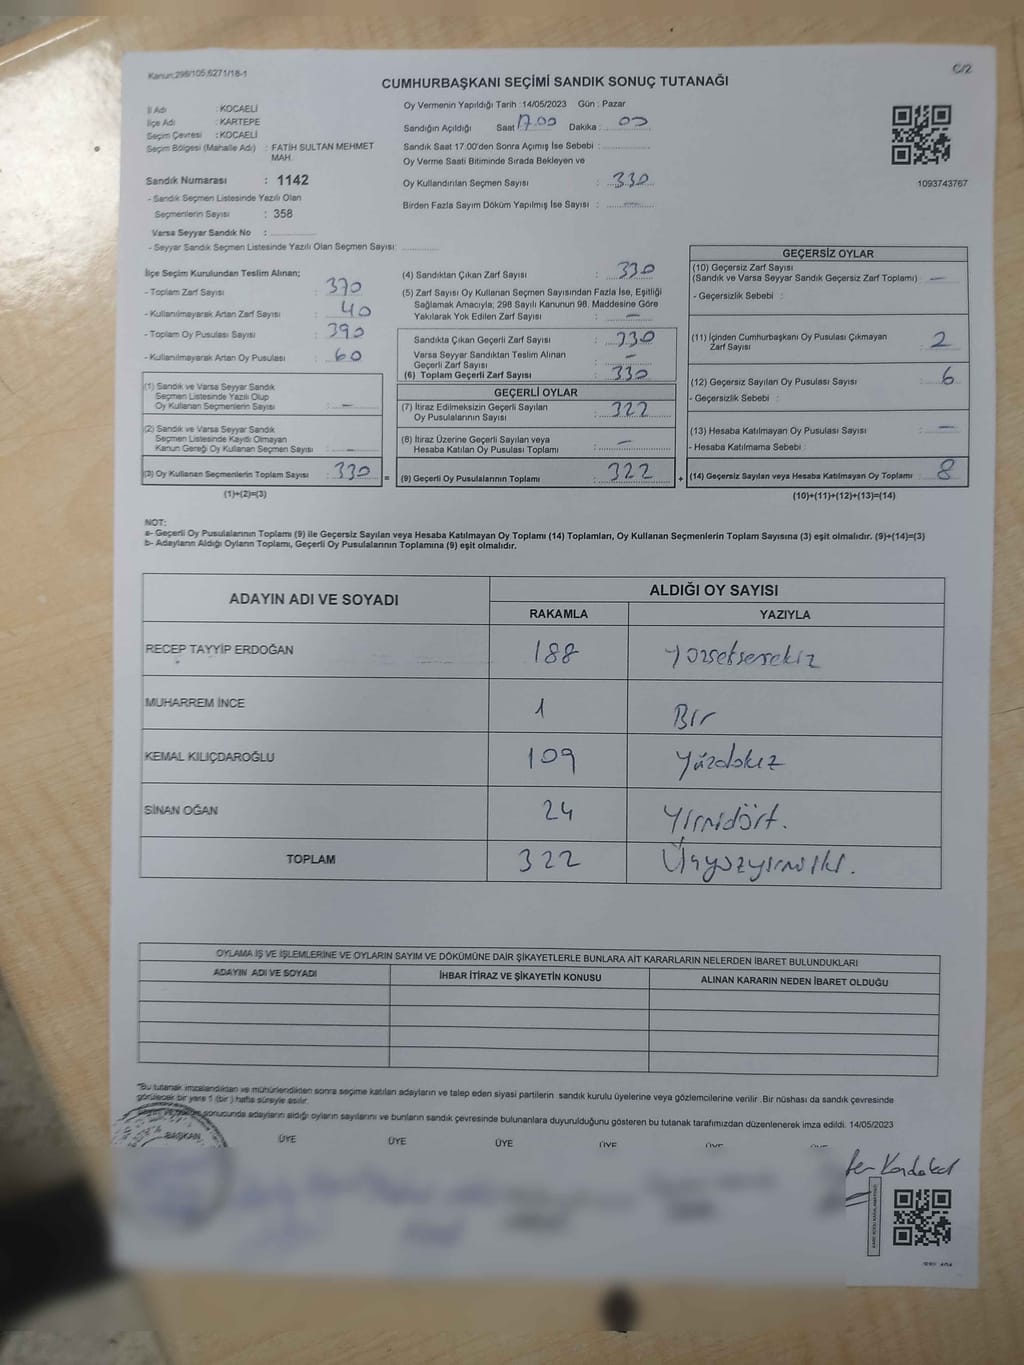 Kanun;298/105,6271/18-1
C/2
CUMHURBAŞKANI SEÇİMİ SANDIK SONUÇ TUTANAĞI
İl Adı : KOCAELİ
İlçe Adı : KARTEPE
Seçim Çevresi : KOCAELİ
Seçim Bölgesi (Mahalle Adı) : FATİH SULTAN MEHMET MAH.
Sandık Numarası : 1142
- Sandık Seçmen Listesinde Yazılı Olan
Seçmenlerin Sayısı : 358
Varsa Seyyar Sandık No :
- Seyyar Sandık Seçmen Listesinde Yazılı Olan Seçmen Sayısı:
Oy Vermenin Yapıldığı Tarih :14/05/2023 Gün : Pazar
Sandığın Açıldığı Saat 17.00 Dakika : 00
Sandık Saat 17.00'den Sonra Açımış İse Sebebi :
Oy Verme Saati Bitiminde Sırada Bekleyen ve
Oy Kullandırılan Seçmen Sayısı : 330
Birden Fazla Sayım Döküm Yapılmış İse Sayısı : —
1093743767
İlçe Seçim Kurulundan Teslim Alınan;
- Toplam Zarf Sayısı : 370
- Kullanılmayarak Artan Zarf Sayısı : 40
- Toplam Oy Pusulası Sayısı : 390
- Kullanılmayarak Artan Oy Pusulası : 60
(1) Sandık ve Varsa Seyyar Sandık
Seçmen Listesinde Yazılı Olup
Oy Kullanan Seçmenlerin Sayısı : —
(2) Sandık ve Varsa Seyyar Sandık
Seçmen Listesinde Kayıtlı Olmayan
Kanun Gereği Oy Kullanan Seçmen Sayısı : —
(3) Oy Kullanan Seçmenlerin Toplam Sayısı : 330
(1)+(2)=(3)
(4) Sandıktan Çıkan Zarf Sayısı : 330
(5) Zarf Sayısı Oy Kullanan Seçmen Sayısından Fazla İse, Eşitliği
Sağlamak Amacıyla; 298 Sayılı Kanunun 98. Maddesine Göre
Yakılarak Yok Edilen Zarf Sayısı : —
Sandıkta Çıkan Geçerli Zarf Sayısı : 330
Varsa Seyyar Sandıktan Teslim Alınan
Geçerli Zarf Sayısı : —
(6) Toplam Geçerli Zarf Sayısı : 330
GEÇERLİ OYLAR
(7) İtiraz Edilmeksizin Geçerli Sayılan
Oy Pusulalarının Sayısı : 322
(8) İtiraz Üzerine Geçerli Sayılan veya
Hesaba Katılan Oy Pusulası Toplamı : —
= (9) Geçerli Oy Pusulalarının Toplamı : 322 +
GEÇERSİZ OYLAR
(10) Geçersiz Zarf Sayısı
(Sandık ve Varsa Seyyar Sandık Geçersiz Zarf Toplamı) : —
- Geçersizlik Sebebi :
(11) İçinden Cumhurbaşkanı Oy Pusulası Çıkmayan
Zarf Sayısı : 2
(12) Geçersiz Sayılan Oy Pusulası Sayısı : 6
- Geçersizlik Sebebi :
(13) Hesaba Katılmayan Oy Pusulası Sayısı : —
- Hesaba Katılmama Sebebi :
(14) Geçersiz Sayılan veya Hesaba Katılmayan Oy Toplamı : 8
(10)+(11)+(12)+(13)=(14)
NOT:
a- Geçerli Oy Pusulalarının Toplamı (9) ile Geçersiz Sayılan veya Hesaba Katılmayan Oy Toplamı (14) Toplamları, Oy Kullanan Seçmenlerin Toplam Sayısına (3) eşit olmalıdır. (9)+(14)=(3)
b- Adayların Aldığı Oyların Toplamı, Geçerli Oy Pusulalarının Toplamına (9) eşit olmalıdır.
ADAYIN ADI VE SOYADI ALDIĞI OY SAYISI
RAKAMLA YAZIYLA
RECEP TAYYİP ERDOĞAN 188 Yüzseksensekiz
MUHARREM İNCE 1 Bir
KEMAL KILIÇDAROĞLU 109 Yüzdokuz
SİNAN OĞAN 24 Yirmidört.
TOPLAM 322 Üçyüzyirmiiki.
OYLAMA İŞ VE İŞLEMLERİNE VE OYLARIN SAYIM VE DÖKÜMÜNE DAİR ŞİKAYETLERLE BUNLARA AİT KARARLARIN NELERDEN İBARET BULUNDUKLARI
ADAYIN ADI VE SOYADI İHBAR İTİRAZ VE ŞİKAYETİN KONUSU ALINAN KARARIN NEDEN İBARET OLDUĞU
"Bu tutanak imzalandıktan ve mühürlendikten sonra seçime katılan adayların ve talep eden siyasi partilerin sandık kurulu üyelerine veya gözlemcilerine verilir .Bir nüshası da sandık çevresinde
görülecek bir yere 1 (bir ) hafta süreyle asılır.
sonucunda adayların aldığı oyların sayılarını ve bunların sandık çevresinde bulunanlara duyurulduğunu gösteren bu tutanak tarafımızdan düzenlenerek imza edildi. 14/05/2023
BAŞKAN ÜYE ÜYE ÜYE ÜYE ÜYE